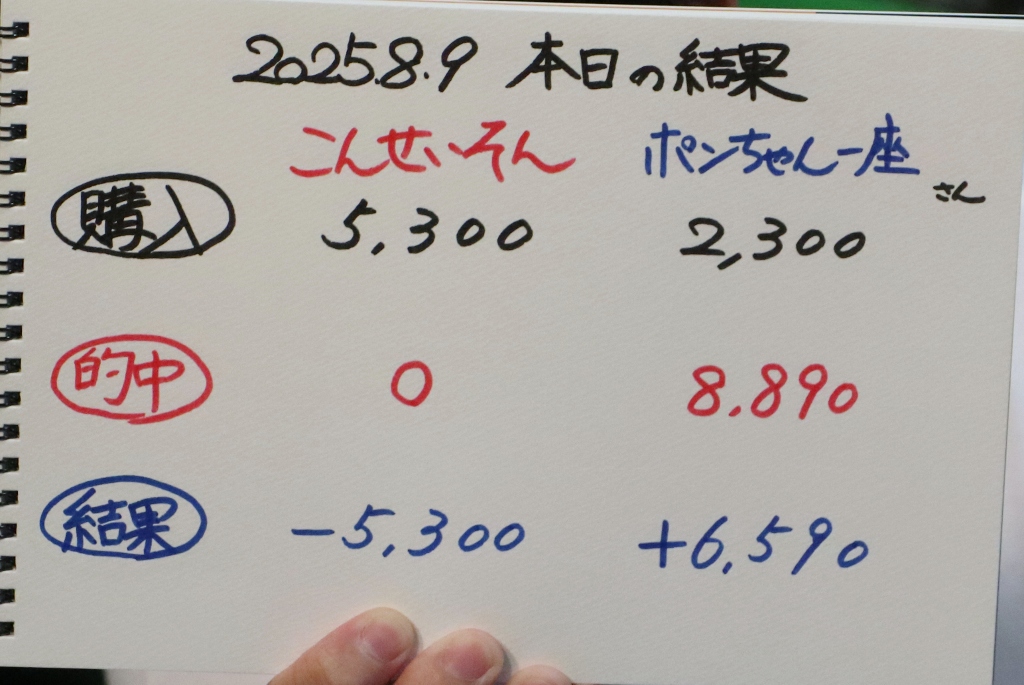 2025.8.9 本日の結果
こんせいそん ポンちゃん一座さん
購入 5,300 2,300
的中 0 8.890
結果 -5,300 +6,590